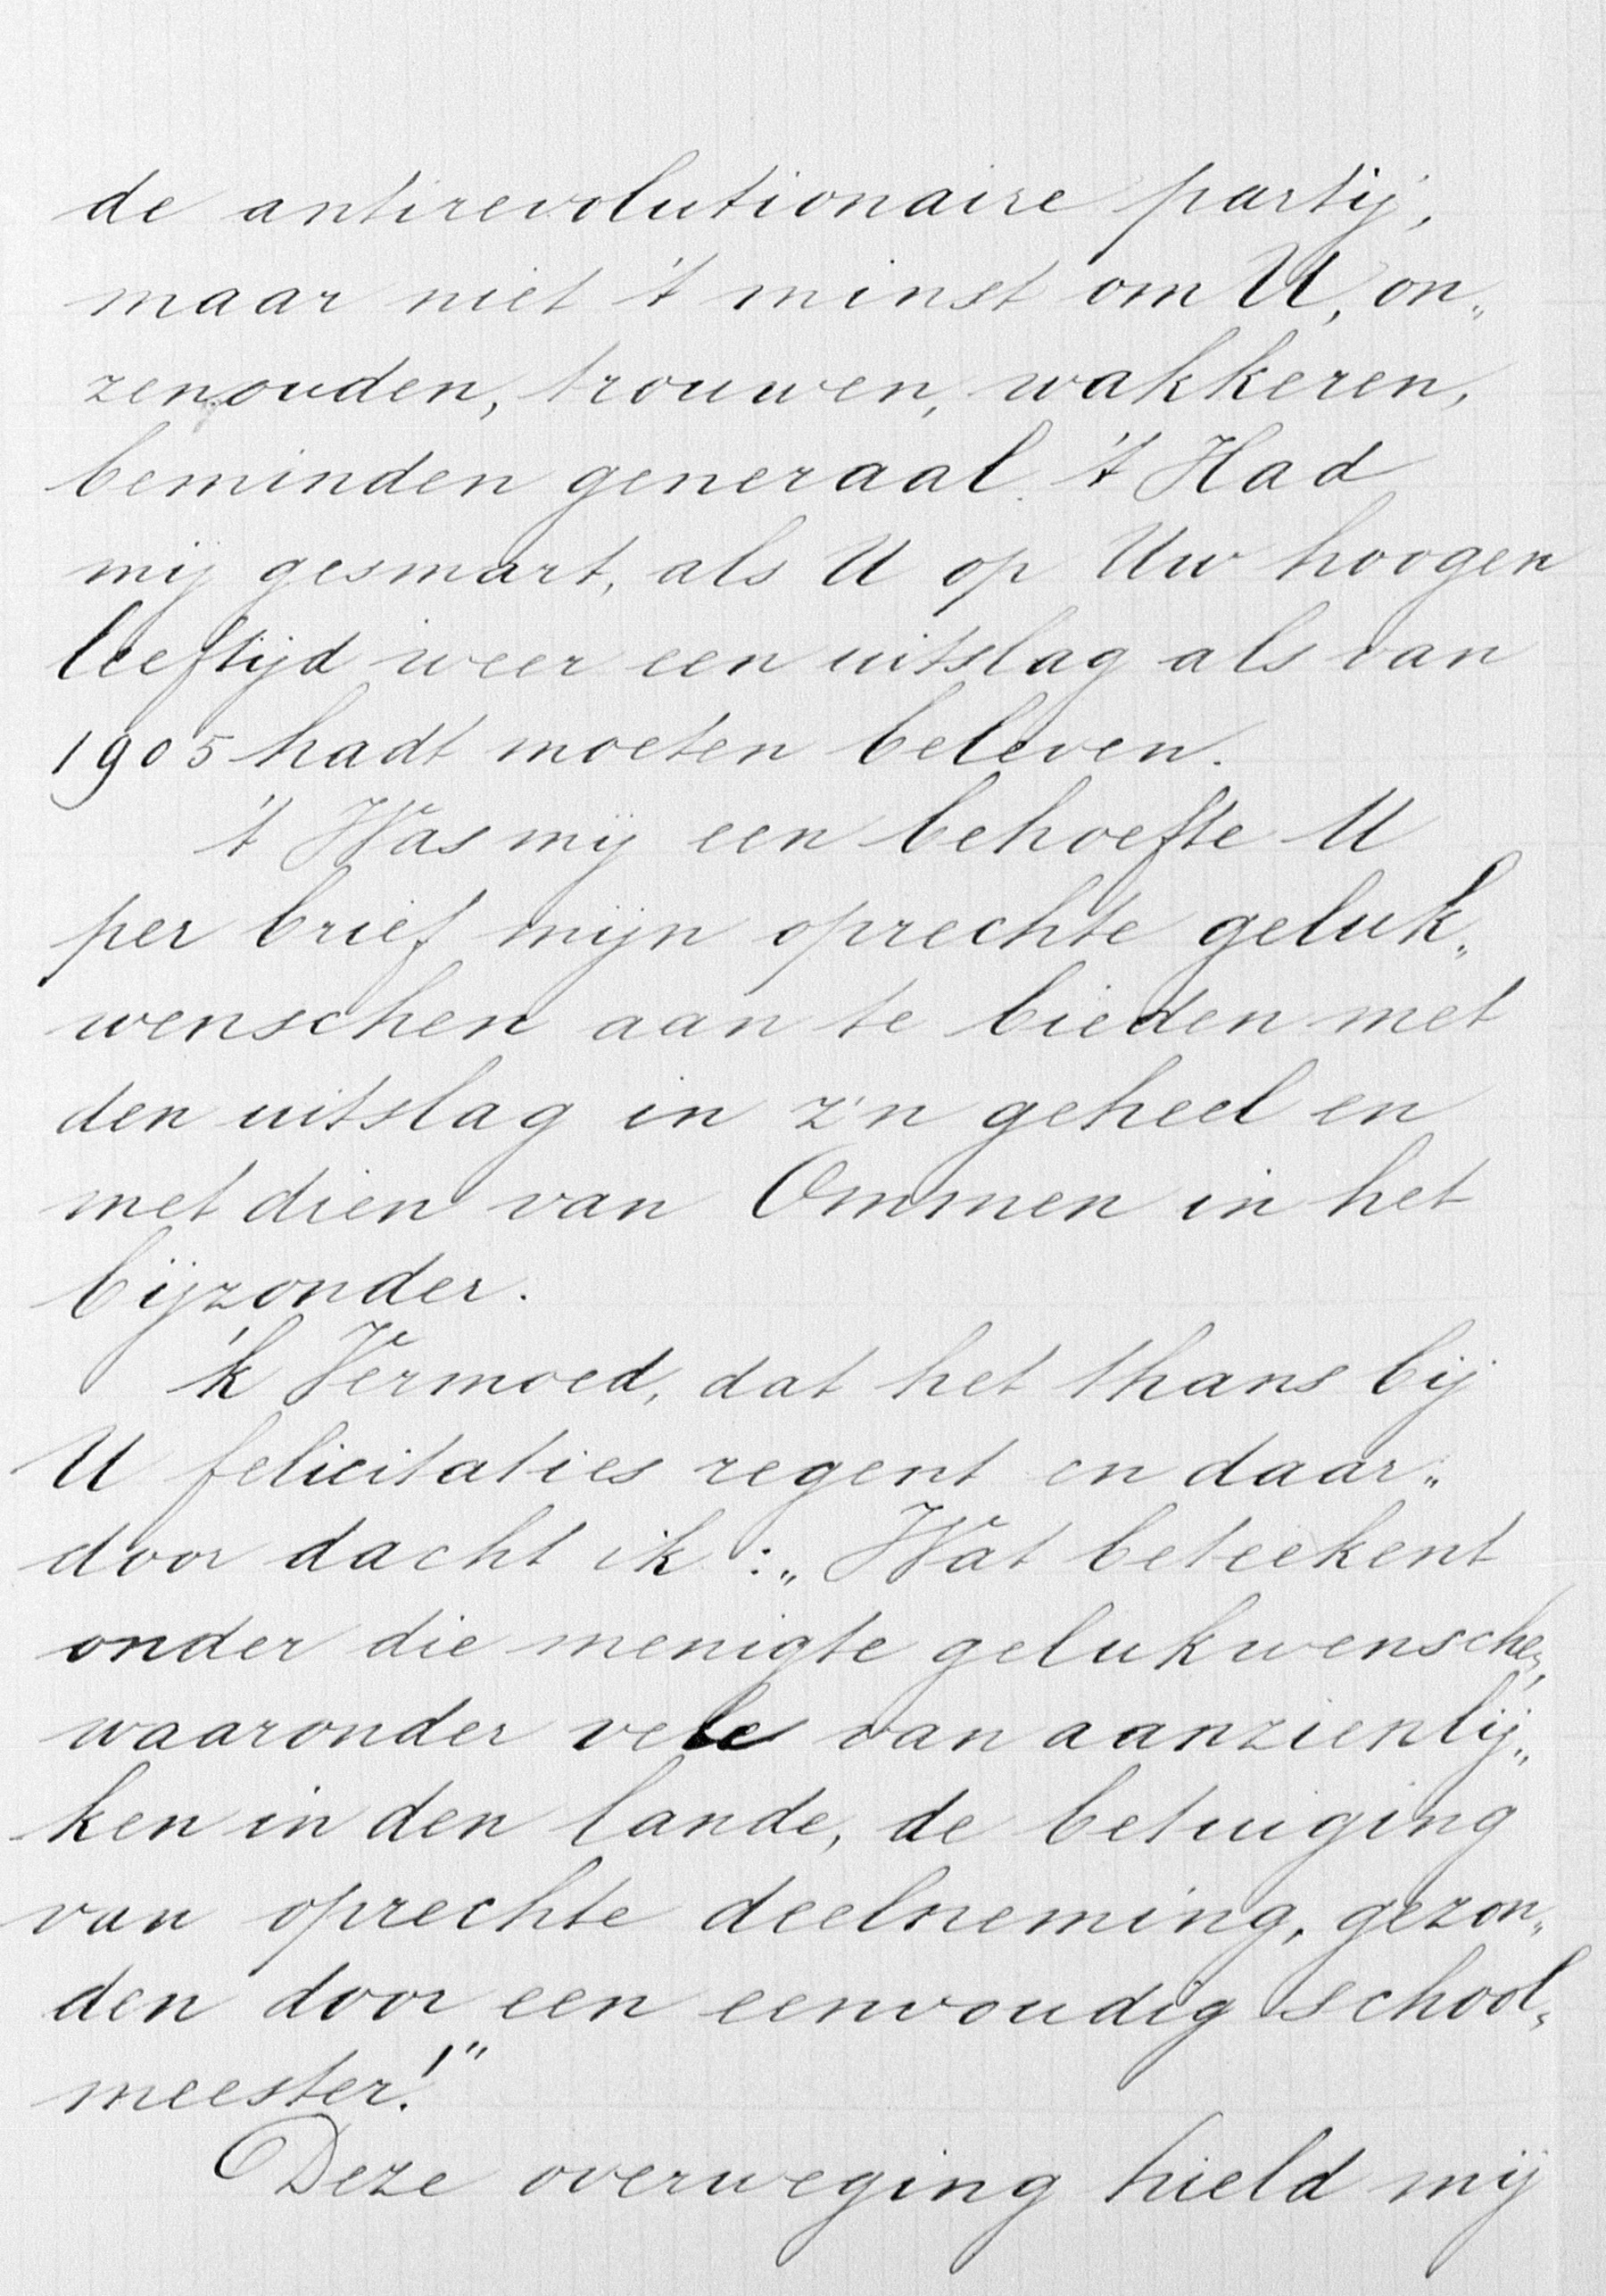 de antirevolutionaire partij,
maar niet 't minst om U, on„
zen ouden, trouwen, wakkeren,
beminden generaal. 't Had
mij gesmart, als U op Uw hoogen
leeftijd weer een uitslag als van
1905 hadt moeten beleven.
't Was mij een behoefte U
per brief mijn oprechte geluk„
wenschen aan te bieden met
den uitslag in z'n geheel en
met dien van Ommen in het
bijzonder.
'k Vermoed, dat het thans bij
U felicitaties regent en daar„
door dacht ik: „Wat beteekent
onder die menigte gelukwenschen,
waaronder vele van aanzienlij„
ken in den lande, de betuiging
van oprechte deelneming, gezon„
den door een eenvoudig school„
meester!"
Deze overweging hield mij